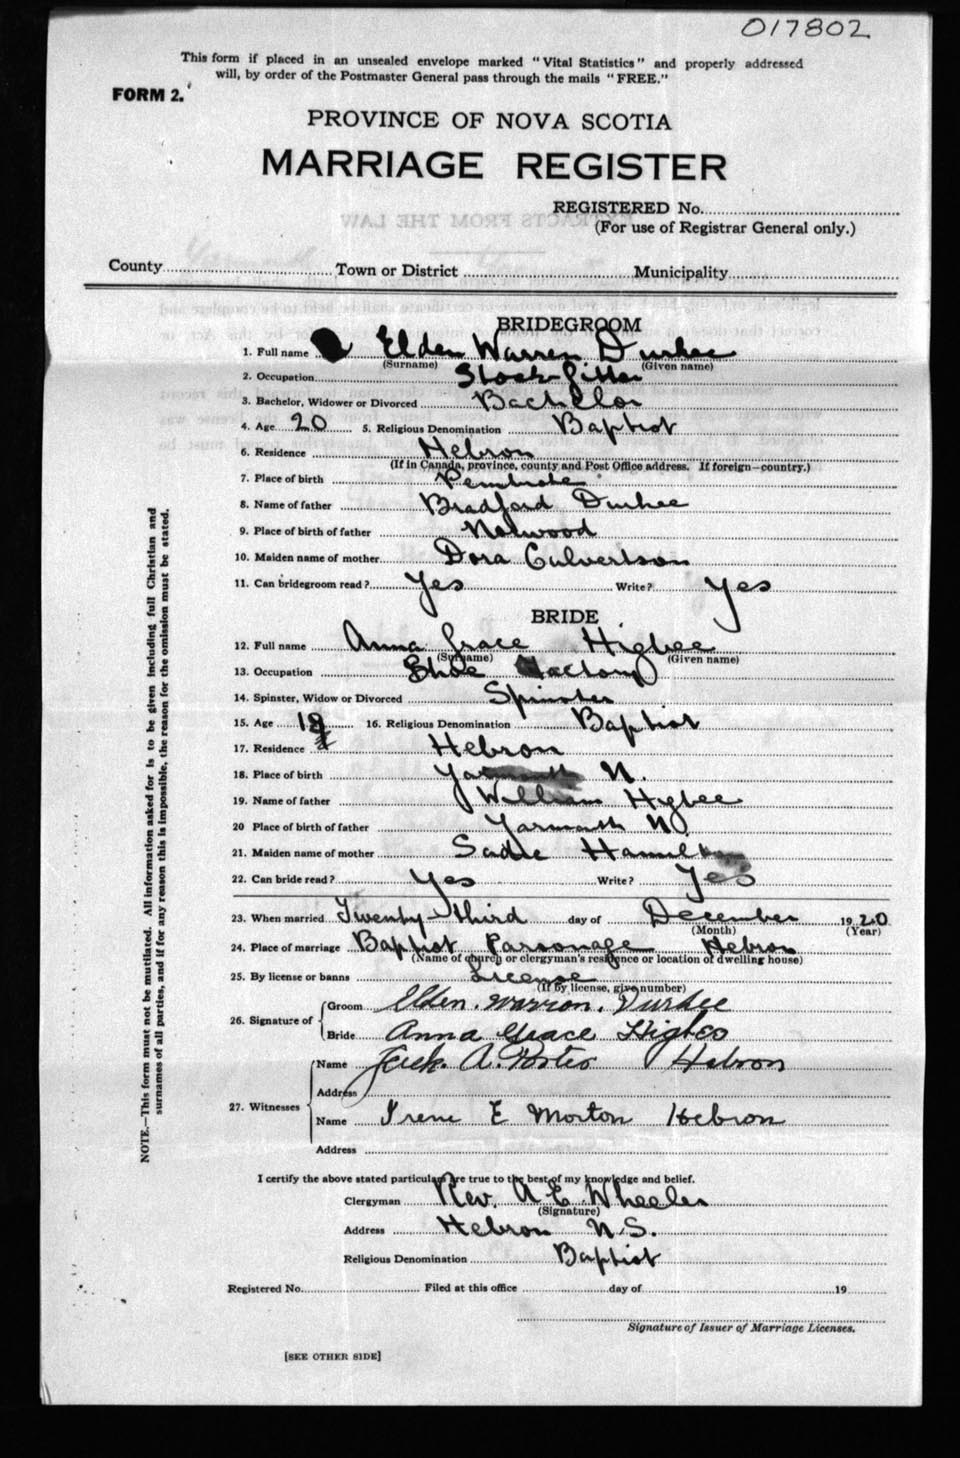 017802
This form if placed in an unsealed envelope marked "Vital Statistics" and properly addressed
will, by order of the Postmaster General pass through the mails "FREE."
FORM 2.
PROVINCE OF NOVA SCOTIA
MARRIAGE REGISTER
REGISTERED No.
(For use of Registrar General only.)
County Town or District Municipality
BRIDEGROOM
1. Full name Elden Warren Durkee
(Surname) (Given name)
2. Occupation Stock fitter
3. Bachelor, Widower or Divorced Bachelor
4. Age 20 5. Religious Denomination Baptist
6. Residence Hebron
(If in Canada, province, county and Post Office address. If foreign—country.)
7. Place of birth Pembroke
8. Name of father Bradford Durkee
9. Place of birth of father Norwood
10. Maiden name of mother Dora Culvertson
11. Can bridegroom read? Yes Write? Yes
BRIDE
12. Full name Anna Grace Higbee
(Surname) (Given name)
13. Occupation Shoe Factory
14. Spinster, Widow or Divorced Spinster
15. Age 18 16. Religious Denomination Baptist
17. Residence Hebron
18. Place of birth Yarmouth N.
19. Name of father William Higbee
20 Place of birth of father Yarmouth N
21. Maiden name of mother Sadie Hamilton
22. Can bride read? Yes Write? Yes
23. When married Twenty-third day of December 1920
(Month) (Year)
24. Place of marriage Baptist Parsonage Hebron
(Name of church or clergyman's residence or location of dwelling house)
25. By license or banns License
(If by license, give number)
26. Signature of Groom Elden. Warren. Durkee
Bride Anna Grace Higbee
27. Witnesses Name Jack. A. Porter Hebron
Address
Name Irene E Morton Hebron
Address
I certify the above stated particulars are true to the best of my knowledge and belief.
Clergyman Rev. A E. Wheeler
(Signature)
Address Hebron N.S.
Religious Denomination Baptist
Registered No. Filed at this office day of 19
Signature of Issuer of Marriage Licenses.
[SEE OTHER SIDE]
NOTE.—This form must not be mutilated. All information asked for is to be given including full Christian and
surnames of all parties, and if for any reason this is impossible, the reason for the omission must be stated.